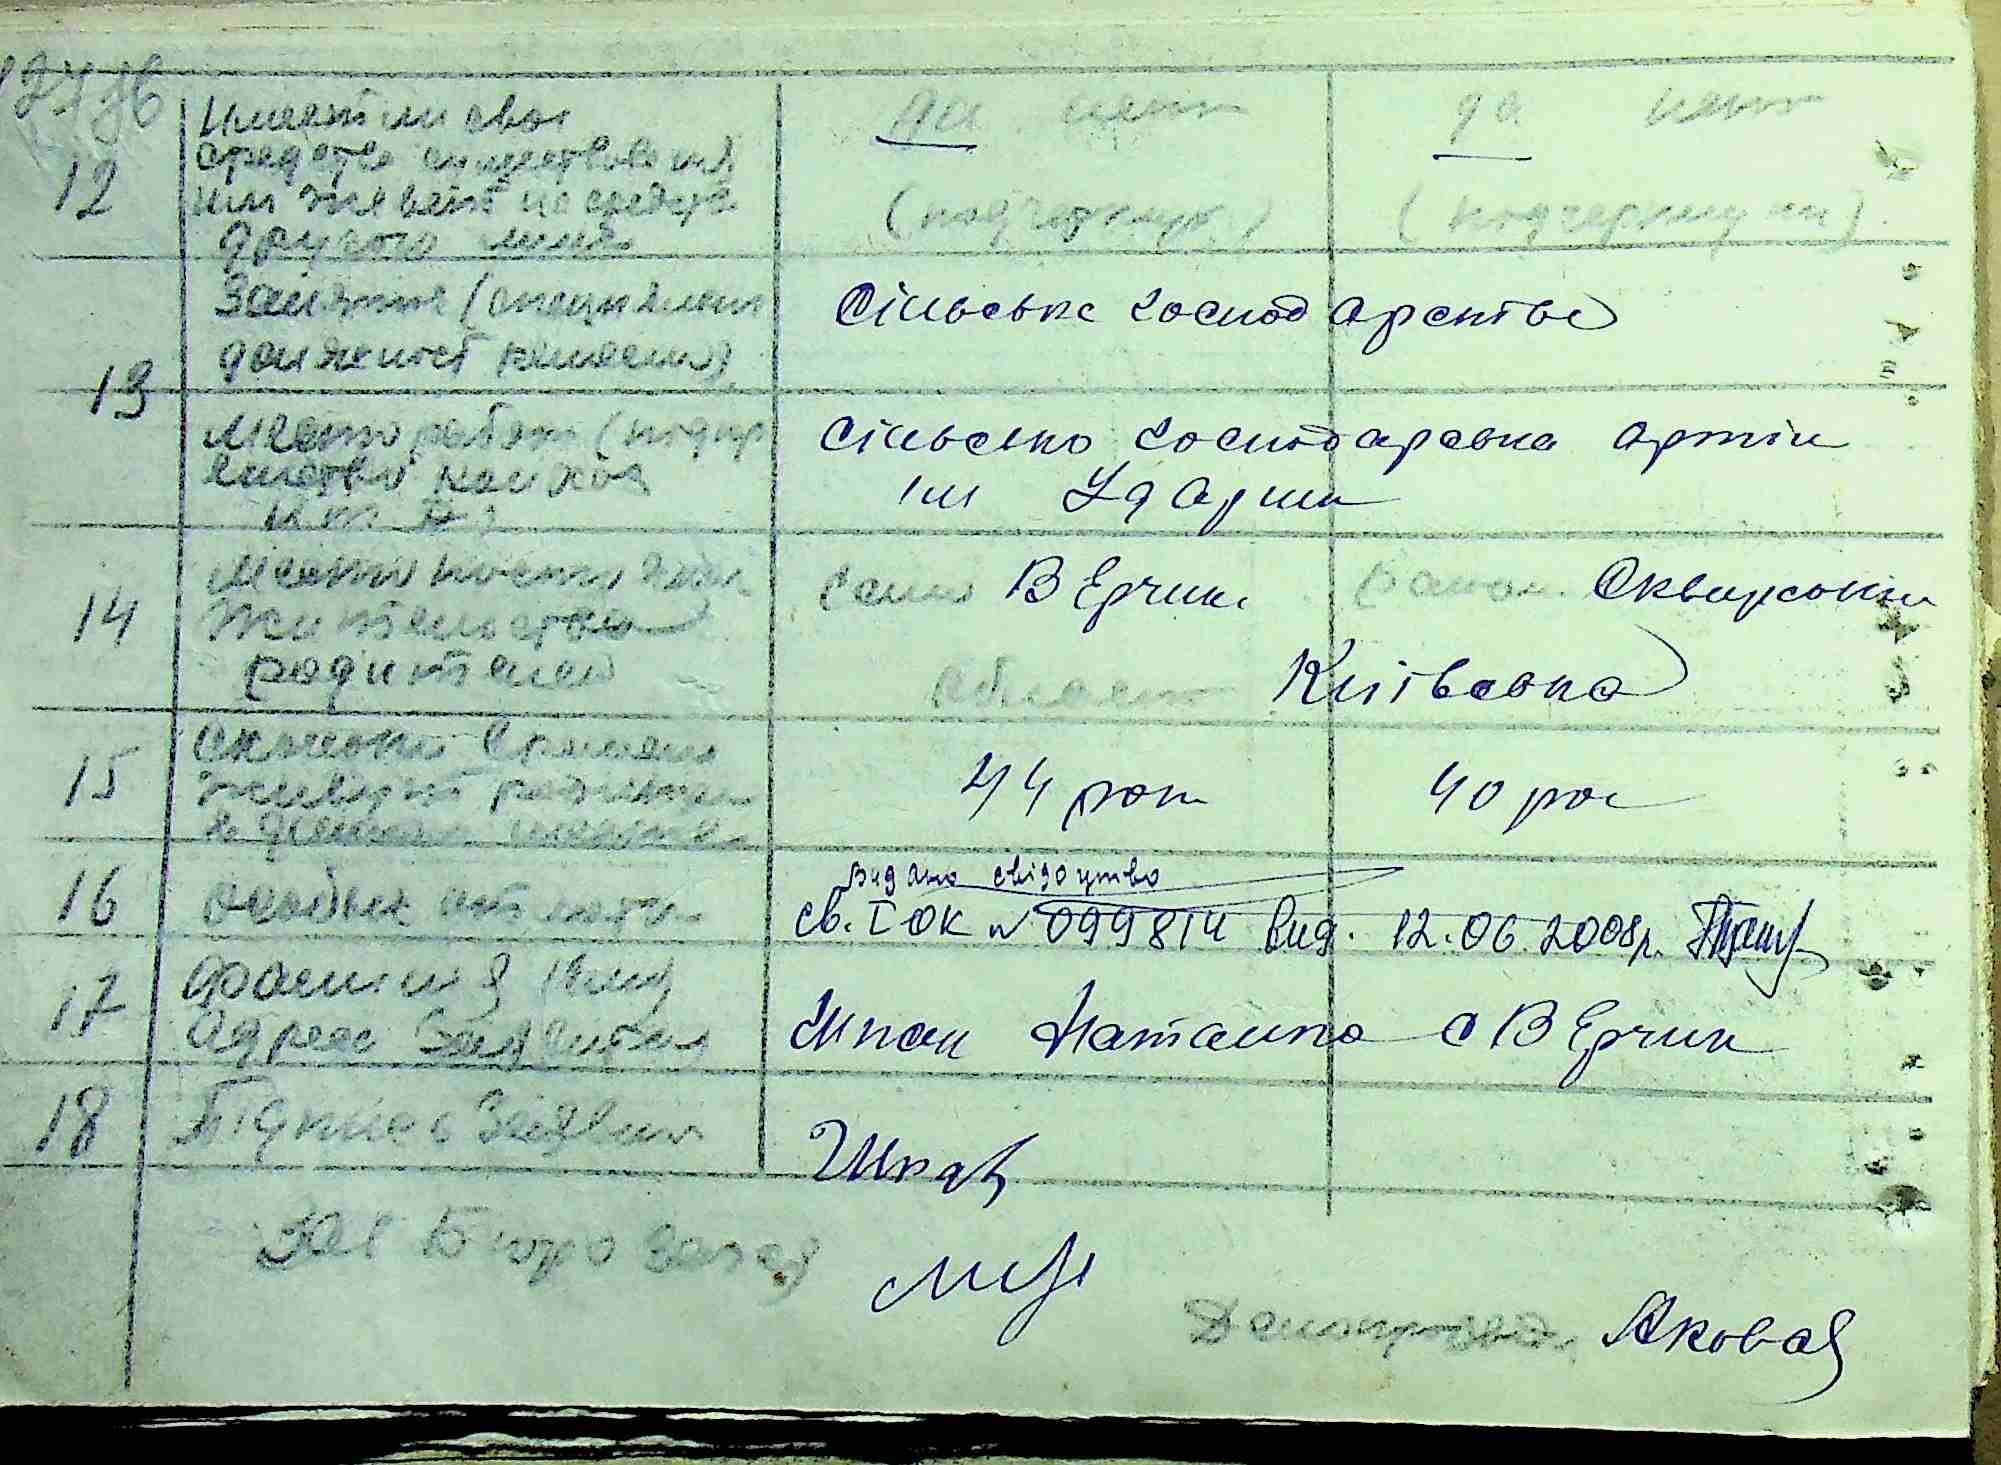 12
Имеют ли свои
средства существования
или живет на средства
другого лица
да нет
да нет
(подчеркнут)
(подчеркнути)
13
Занятие (специальн
должност
Сільське господарство
Место работ (предпр
колхоз
и т д)
Сільсько господарська артіль
ім Ударник
14
Место постоян
жительства
родителей
село В Ерчик
район Сквирський
област Київська
15
Сколько времени
живут родители
в данном
44 рок
40 рос
16
особые отметки
Видано свідоцтво
св. І ОК № 099814 вид. 12.06.2008р.
17
фамилия имя
адрес заявителя
Шпак Наталка с В Ерчик
18
Підпис заявит
Шпак
Зав Бюро загса
Делопроизвод. Яковая